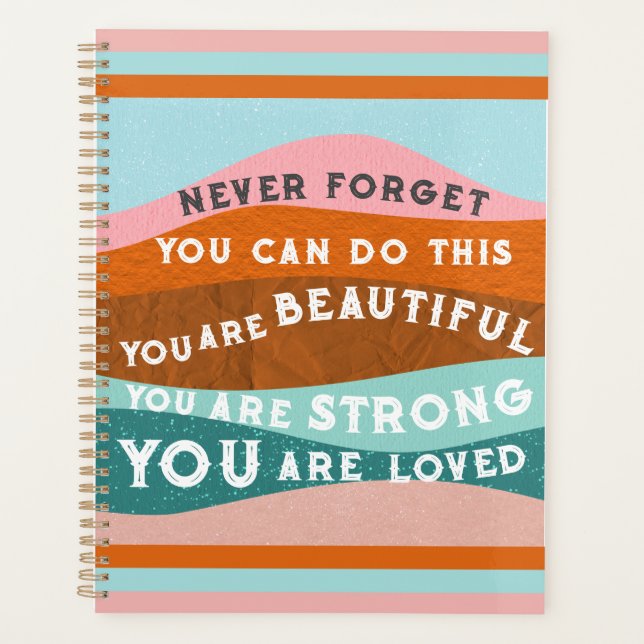 NEVER FORGET
YOU CAN DO THIS
YOU ARE BEAUTIFUL
YOU ARE STRONG
YOU ARE LOVED